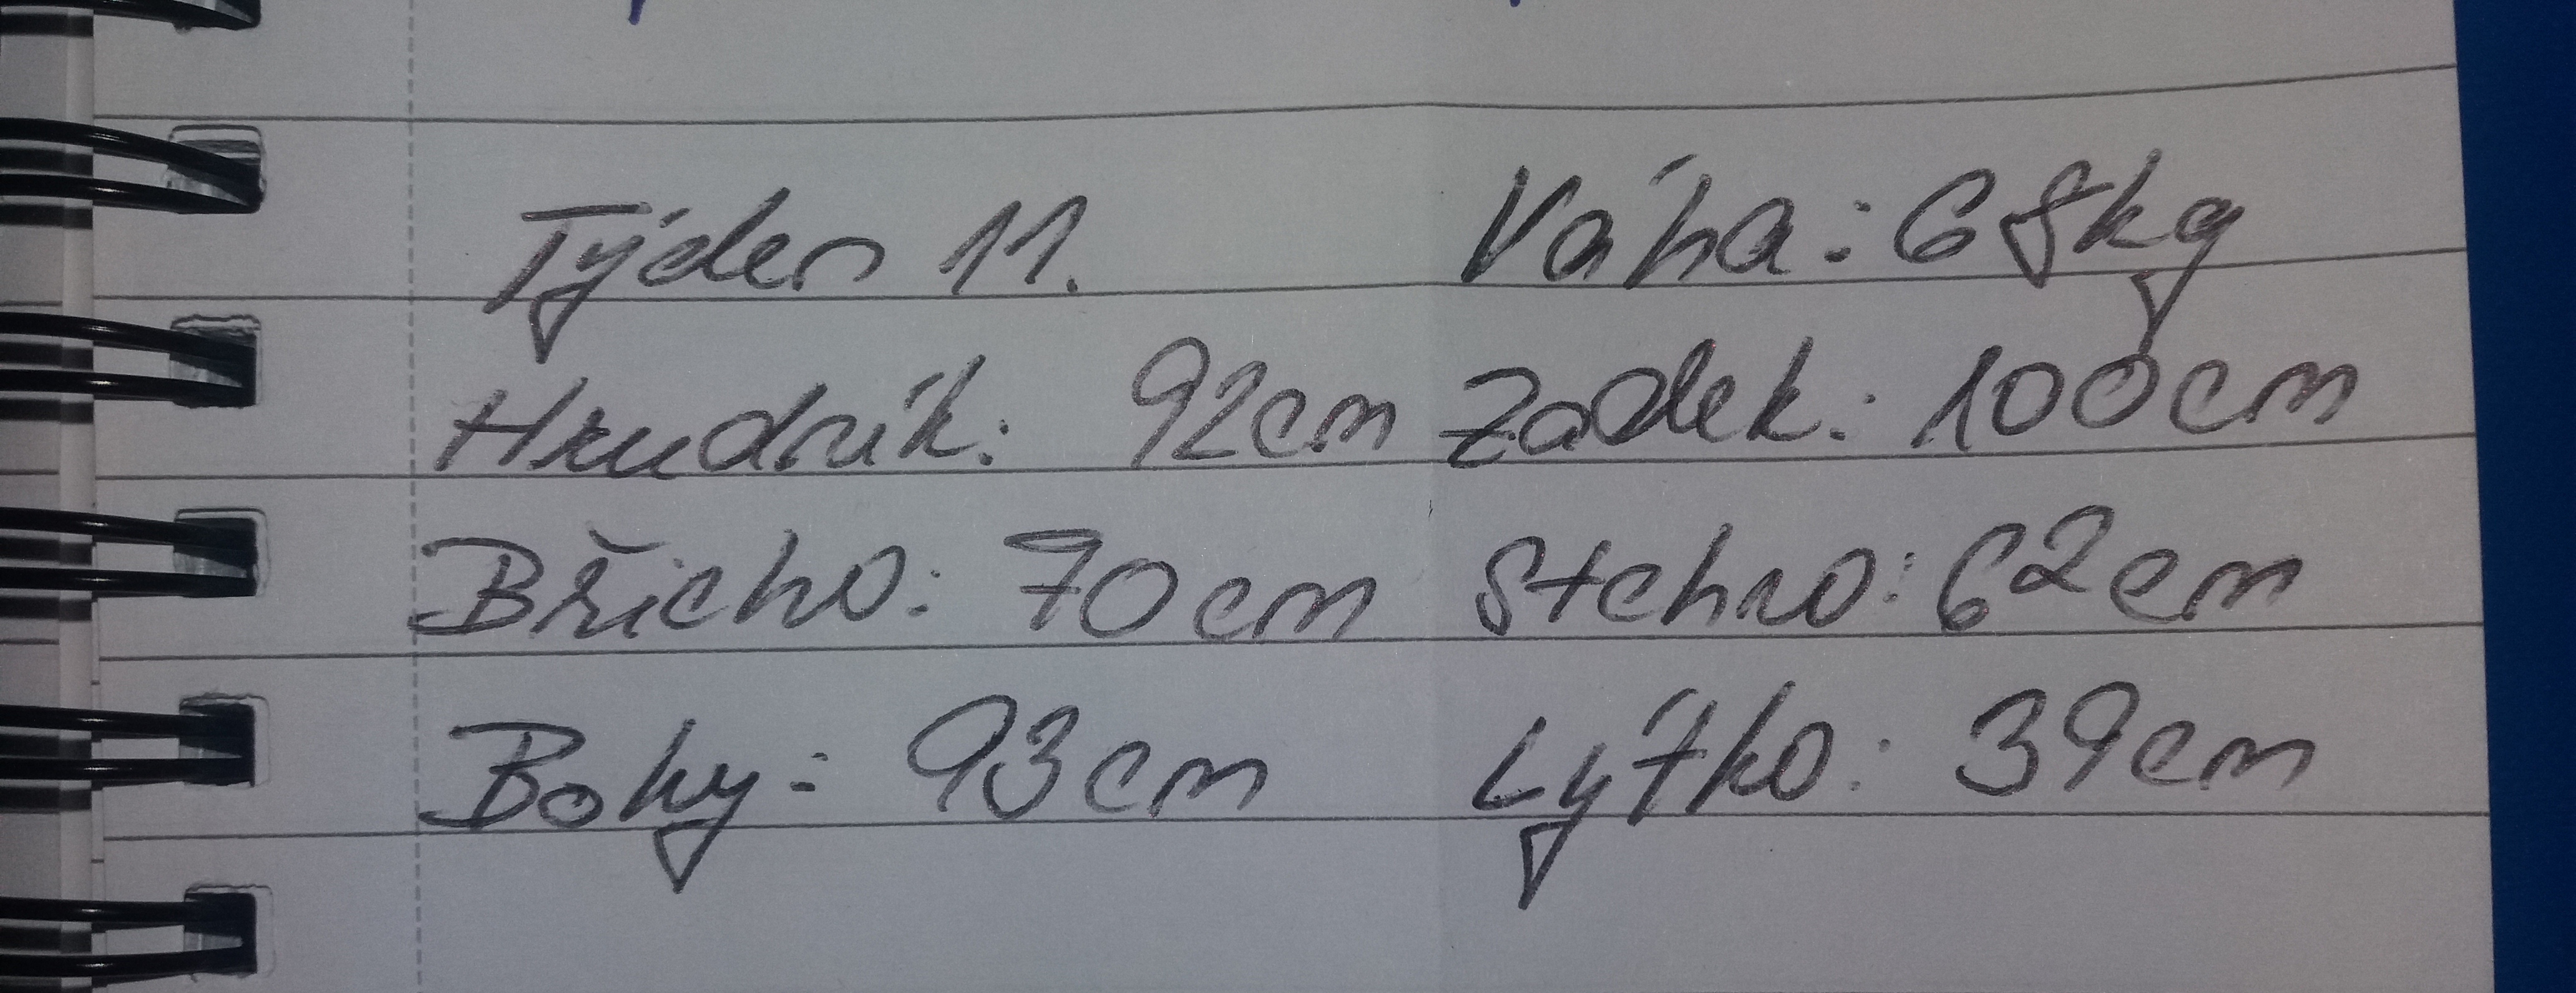 Týden 11. Váha: 68kg
Hrudník: 92cm Zadek: 100cm
Břicho: 70cm Stehno: 62cm
Boky: 93cm Lýtko: 39cm